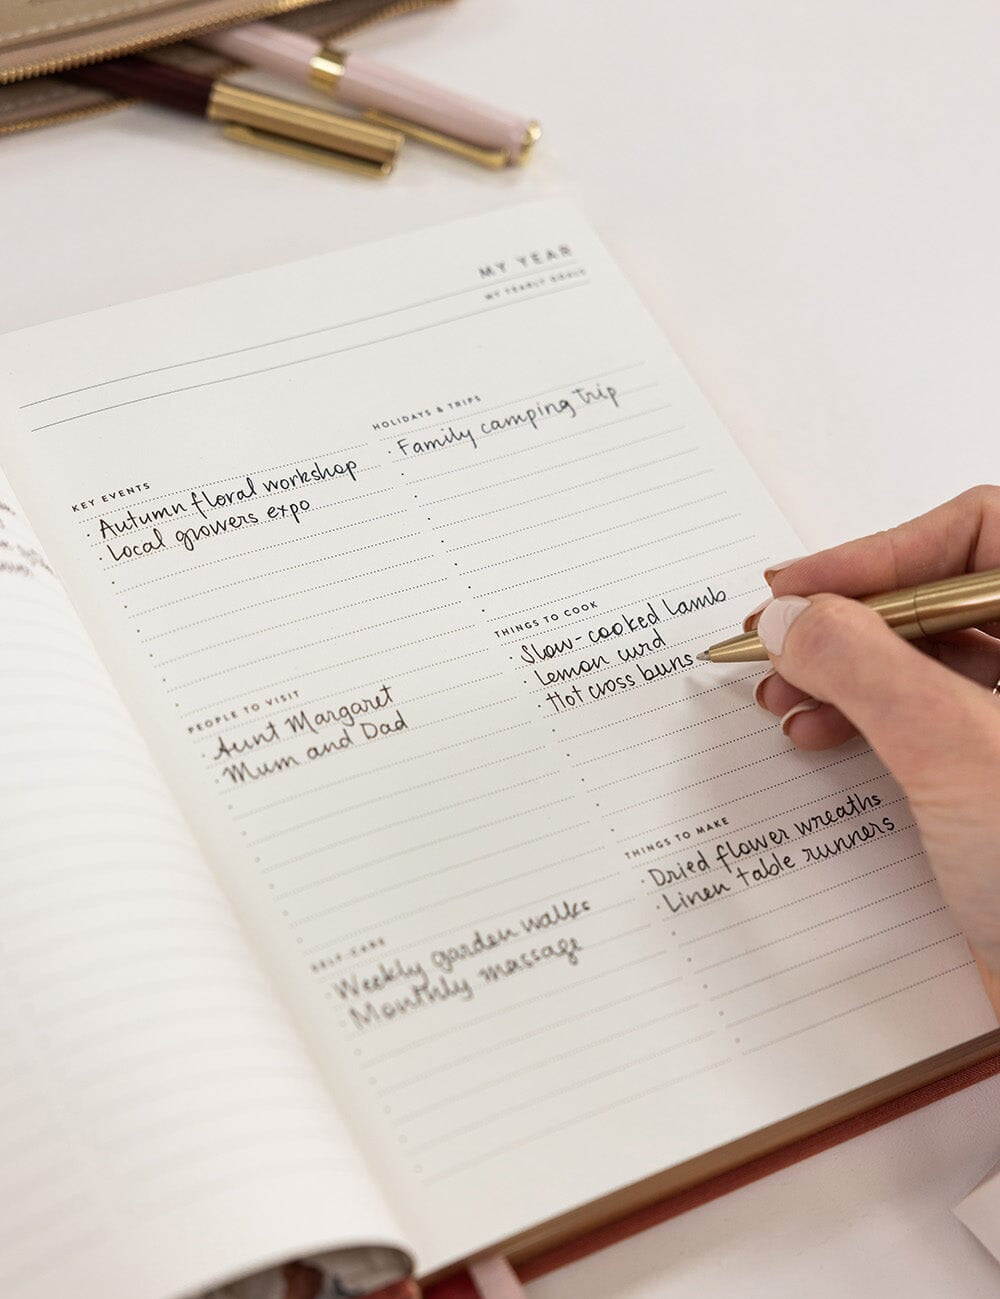 MY YEAR
MY YEARLY GOALS
KEY EVENTS
Autumn floral workshop
Local growers expo
HOLIDAYS & TRIPS
Family camping trip
PEOPLE TO VISIT
Aunt Margaret
Mum and Dad
THINGS TO COOK
Slow-cooked Lamb
Lemon curd
Hot cross buns
SELF-CARE
Weekly garden walks
Monthly massage
THINGS TO MAKE
Dried flower wreaths
Linen table runners